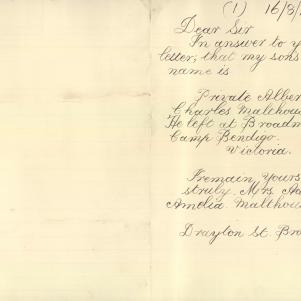 (1) 16/8/
Dear Sir
In answer to y
letter, that my sons
name is
Private Alber
Charles Malthou
He left at Broadm
Camp Bendigo.
Victoria.
I remain, Yours
truly. Mrs. Ad
Amelia. Malthou
Drayton St. Bro